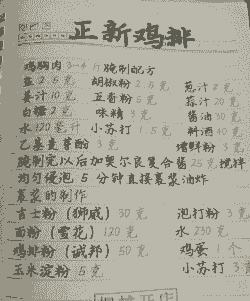 正新鸡排
鸡胸肉 3-4斤 腌制配方
盐 2.5克 胡椒粉 2.5克 葱汁 2克
姜汁 10克 五香粉 5克 蒜汁 20克
白糖 2克 味精 3克 酱油 30克
水 120毫升 小苏打 1.5克 料酒 40克
乙基麦芽酚 3克 增鲜粉 3克
腌制完以后加奥尔良复合酱 25克 搅拌
均匀 5分钟直接裹浆油炸
裹浆的制作
吉士粉（狮威）30克 泡打粉 3克
面粉（雪花）120克 水 230克
鸡排粉（试邦）50克 鸡蛋 1个
玉米淀粉 5克 小苏打 3克